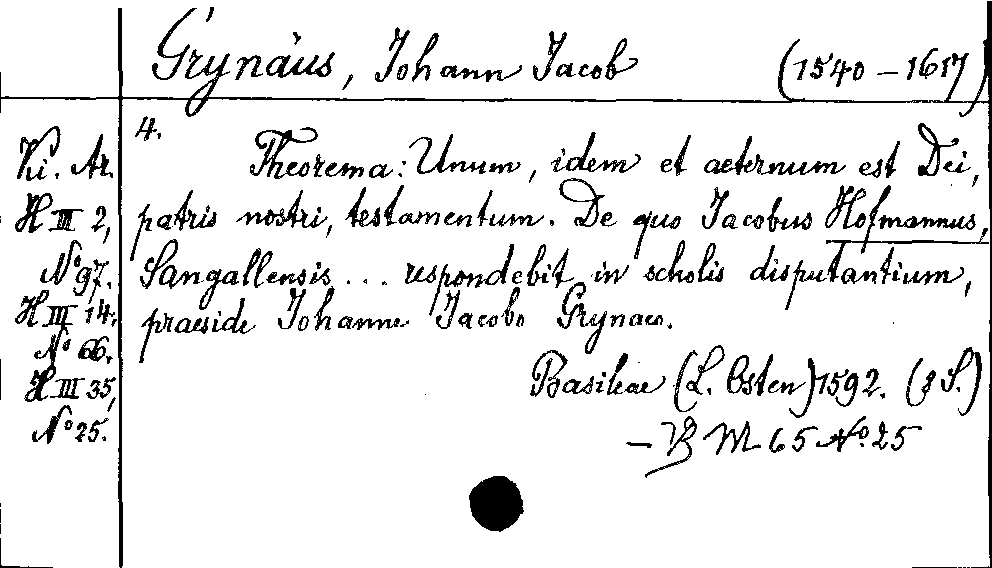 Grynäus, Johann Jacob (1540-1617)
4.
Theorema: Unum, idem et aeternum est Dei,
patris nostri, testamentum. De quo Jacobus Hofmannus,
Sangallensis ... respondebit in scholis disputantium,
praeside Johanne Jacobo Grynaeo.
Basileae (L. Osten) 1592. (8 S.)
- VB M 65 No. 25
Ki. Ar.
H III 2,
No 97.
H III 14,
No 66.
H III 35,
No 25.